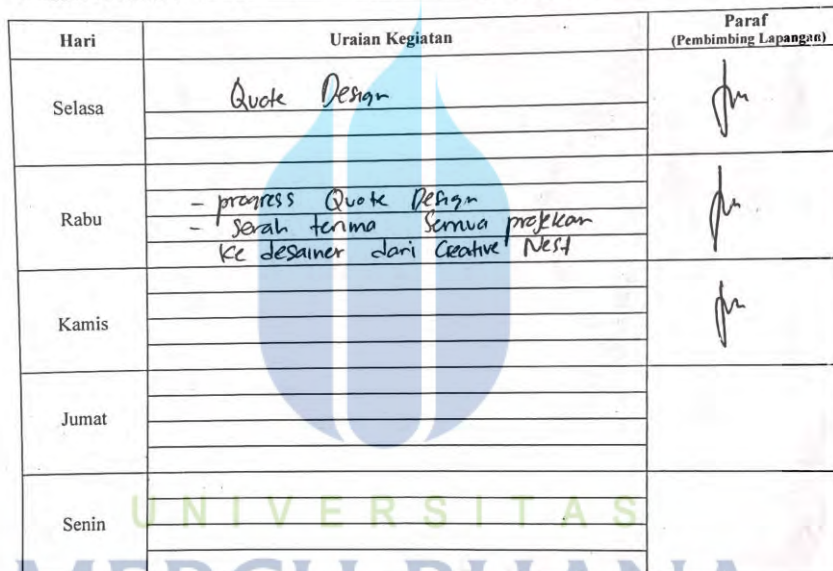 Hari Uraian Kegiatan Paraf
(Pembimbing Lapangan)
Selasa Quote Design
Rabu
- progress Quote Design
- serah terima Semua projekan
ke desainer dari Creative Nest
Kamis
Jumat
Senin
UNIVERSITAS
MERCU BUANA